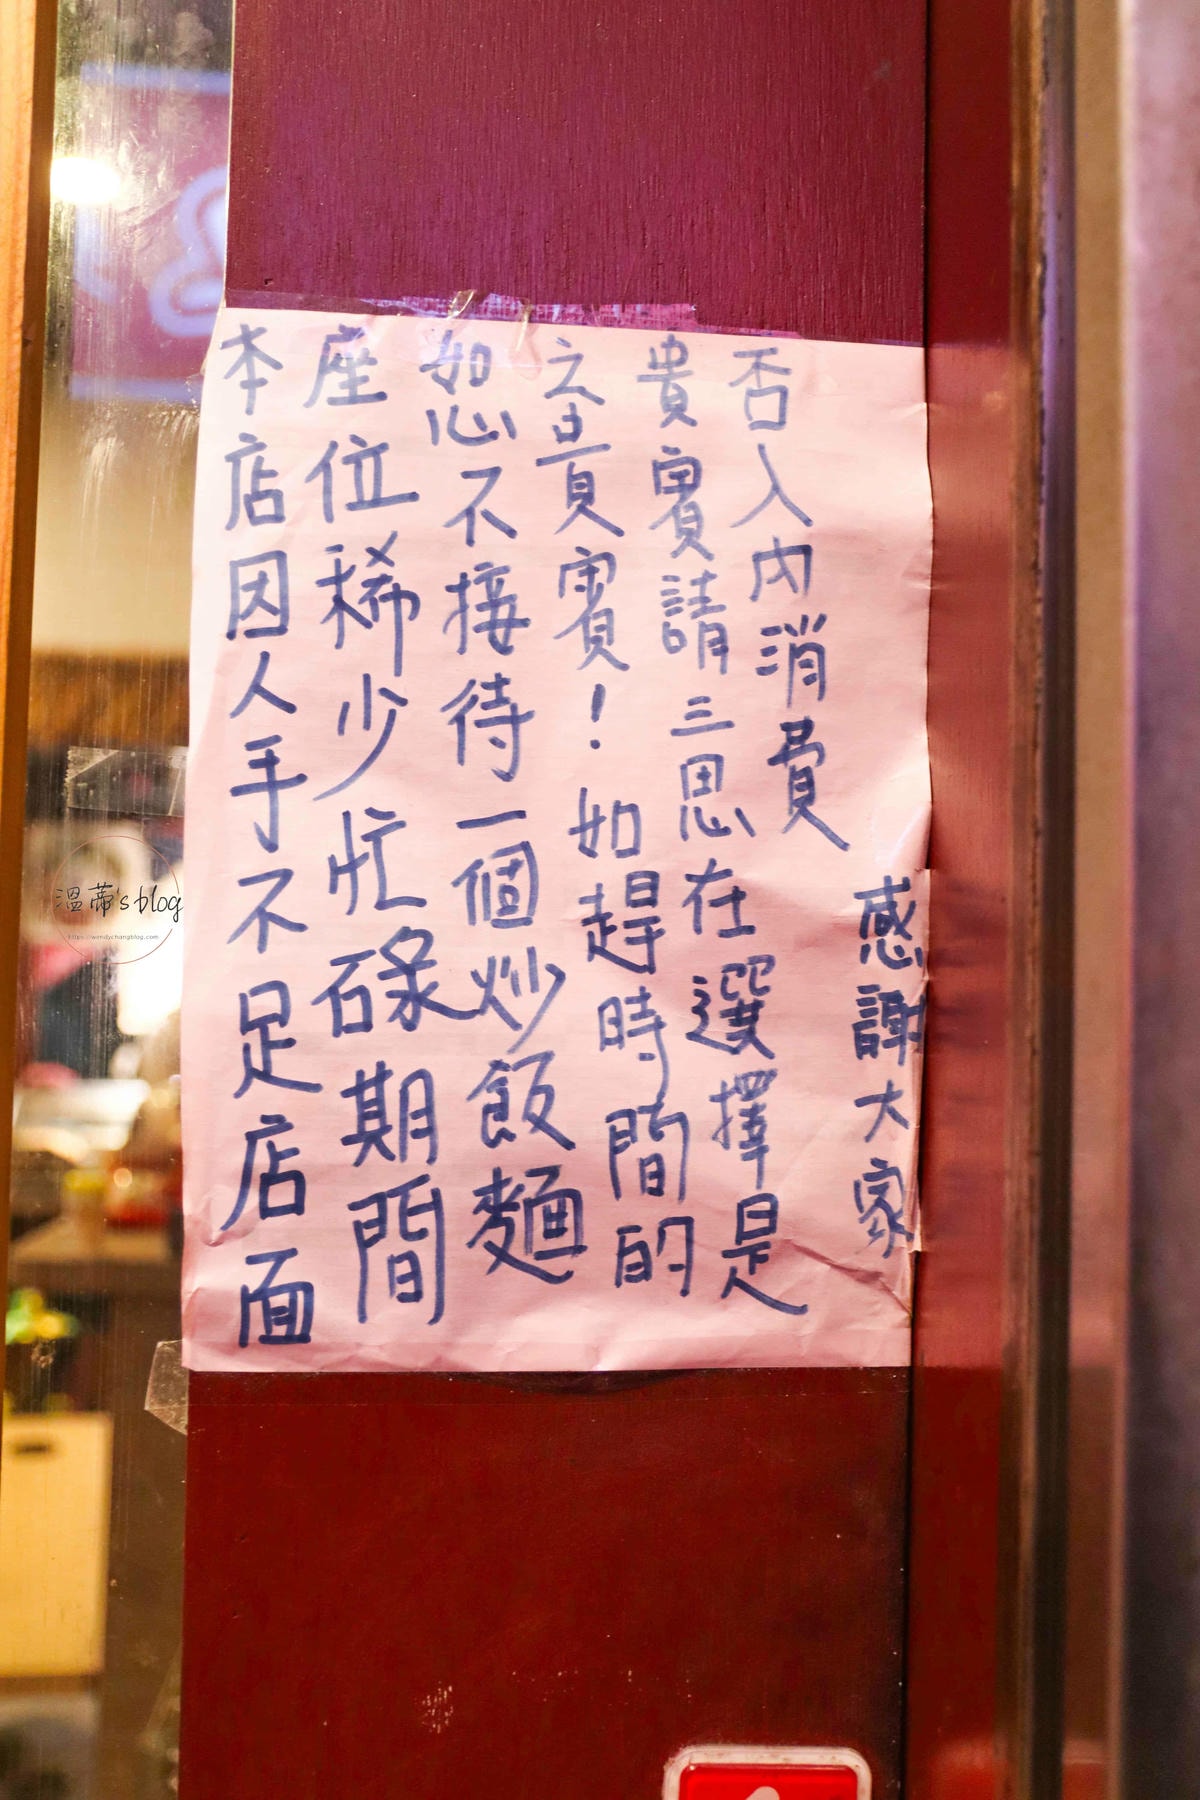 本店因人手不足店面
座位稀少忙碌期間
恕不接待一個炒飯麵
之貴賓！如趕時間的
貴賓請三思在選擇是
否入內消費
感謝大家
溫蒂's blog
https://wendychangblog.com